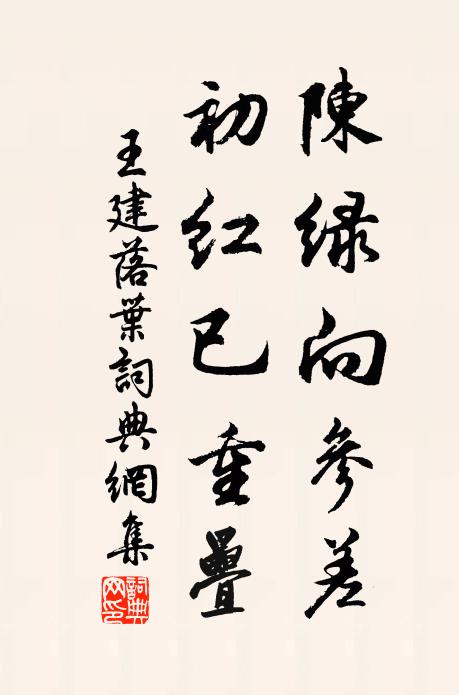 陳緑向參差
初紅已重疊
王建落葉詞典網集
詞典網印